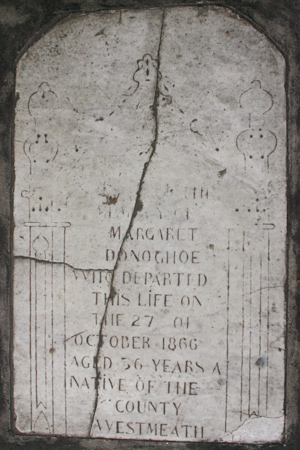 MARGARET
DONOGHOE
WHO DEPARTED
THIS LIFE ON
THE 27 OF
OCTOBER 1866
AGED 36 YEARS A
NATIVE OF THE
COUNTY
WESTMEATH